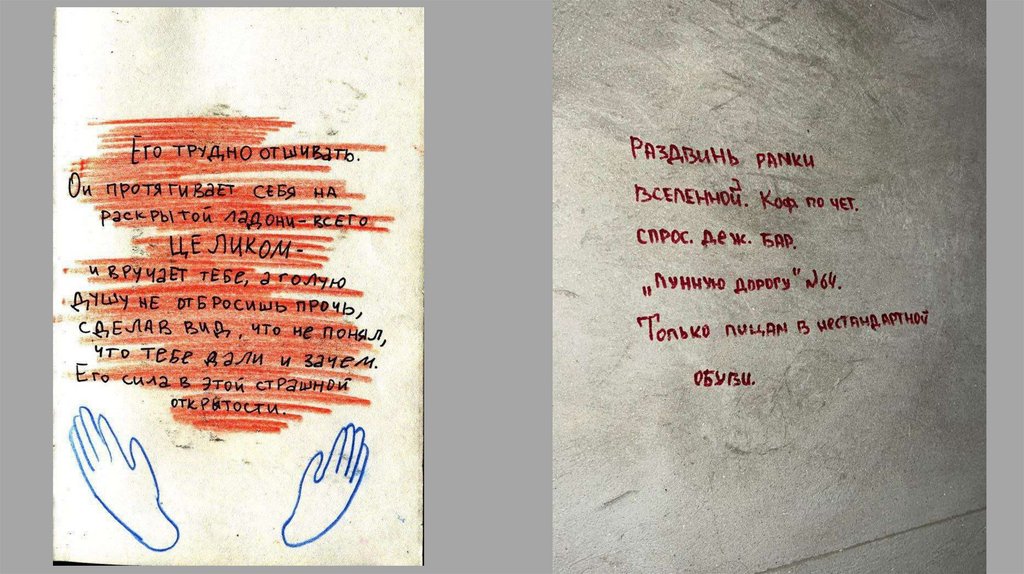 Его трудно отшивать.
Он протягивает себя на
раскрытой ладони - всего
ЦЕЛИКОМ -
и вручает тебе, а голую
душу не отбросишь прочь,
сделав вид, что не понял,
что тебе дали и зачем.
Его сила в этой страшной
открытости.
Раздвинь рамки
вселенной. Коф по чет.
спрос. деж. бар.
„Лунную дорогу" №64.
Только лицам в нестандартной
обуви.